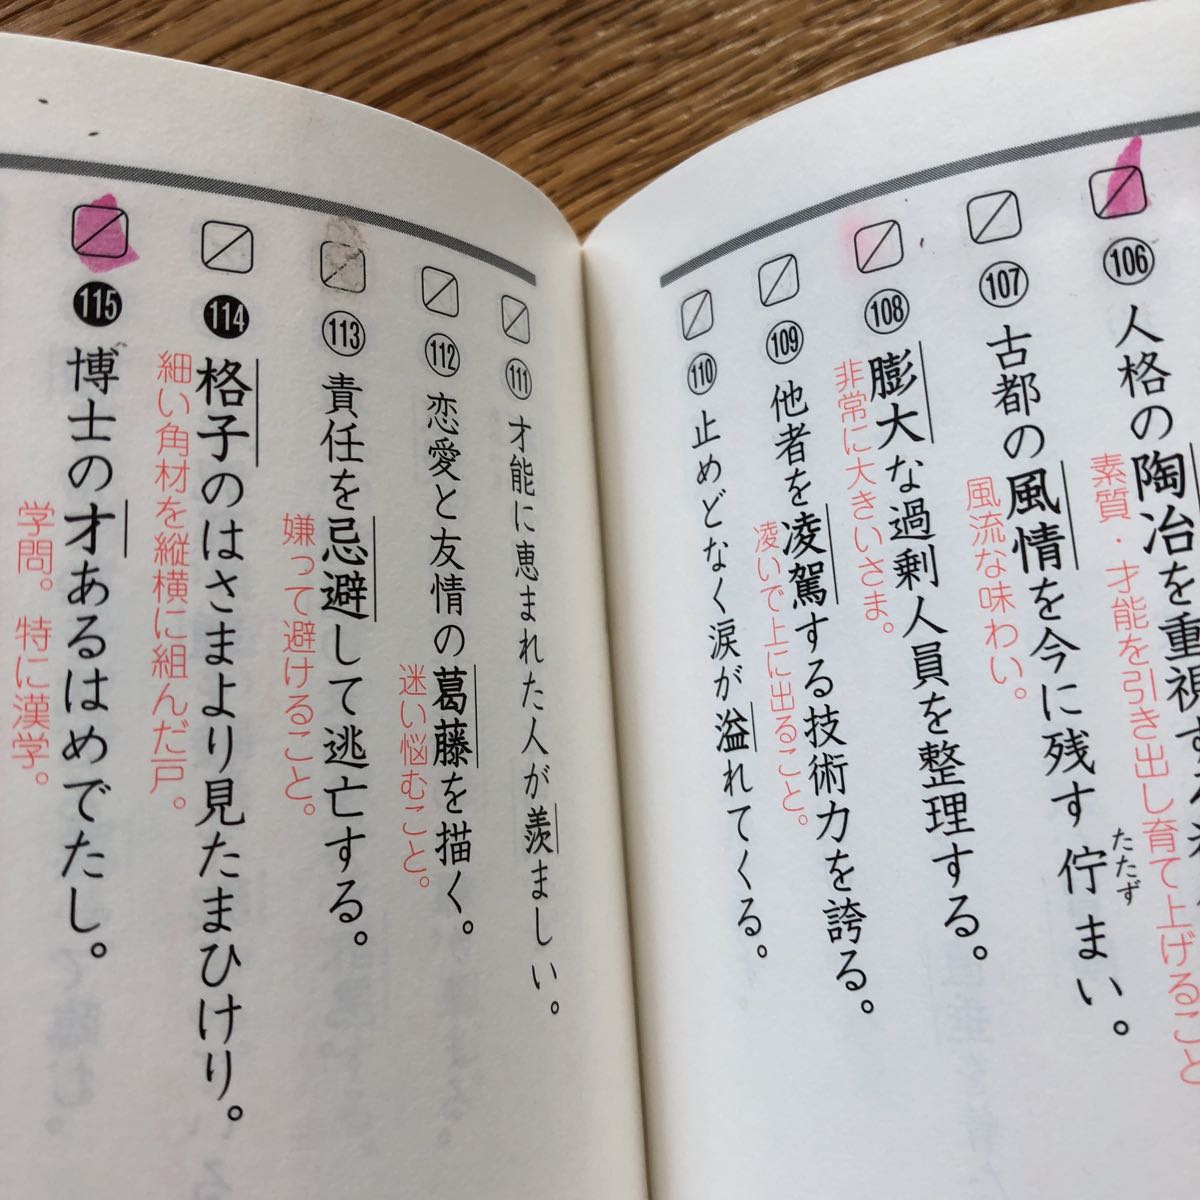 106 人格の陶冶を重視す
素質・才能を引き出し育て上げること
107 古都の風情を今に残す佇まい。
たたず
風流な味わい。
108 膨大な過剰人員を整理する。
非常に大きいさま。
109 他者を凌駕する技術力を誇る。
凌いで上に出ること。
110 止めどなく涙が溢れてくる。
111 才能に恵まれた人が羨ましい。
112 恋愛と友情の葛藤を描く。
迷い悩むこと。
113 責任を忌避して逃亡する。
嫌って避けること。
114 格子のはさまより見たまひけり。
細い角材を縦横に組んだ戸。
115 博士の才あるはめでたし。
学問。特に漢学。